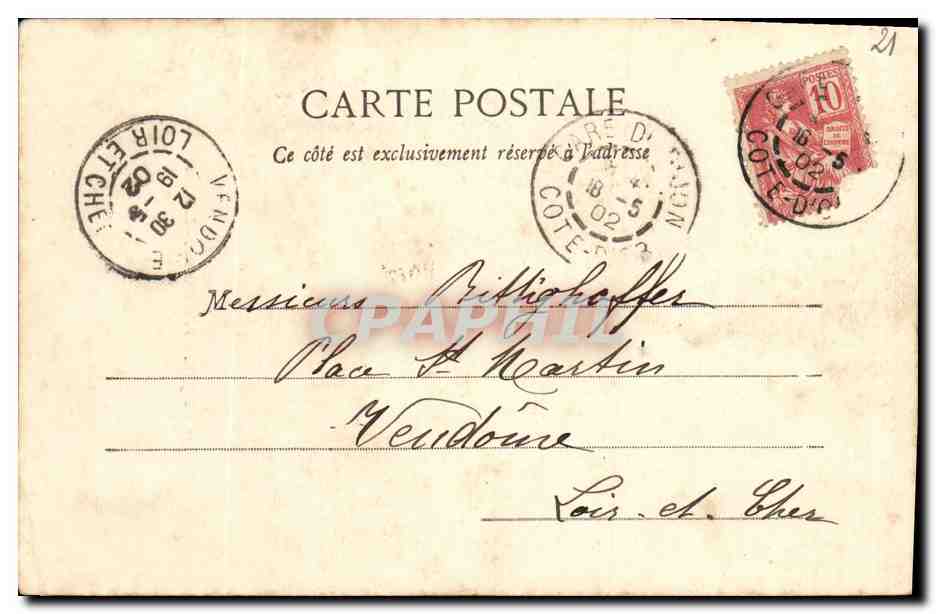 21
CARTE POSTALE
Ce côté est exclusivement réservé à l'adresse
POSTES
10
DROITS DE L'HOMME
16 -5
02
COTE-D'O
GARE DE DIJON
18 -5
02
COTE-D'O
VENDOME
12 30
19 -5
02
LOIR ET CHER
Messieurs Bittighoffer
Place St Martin
Vendôme
Loir-et-Cher
CPAPHIL